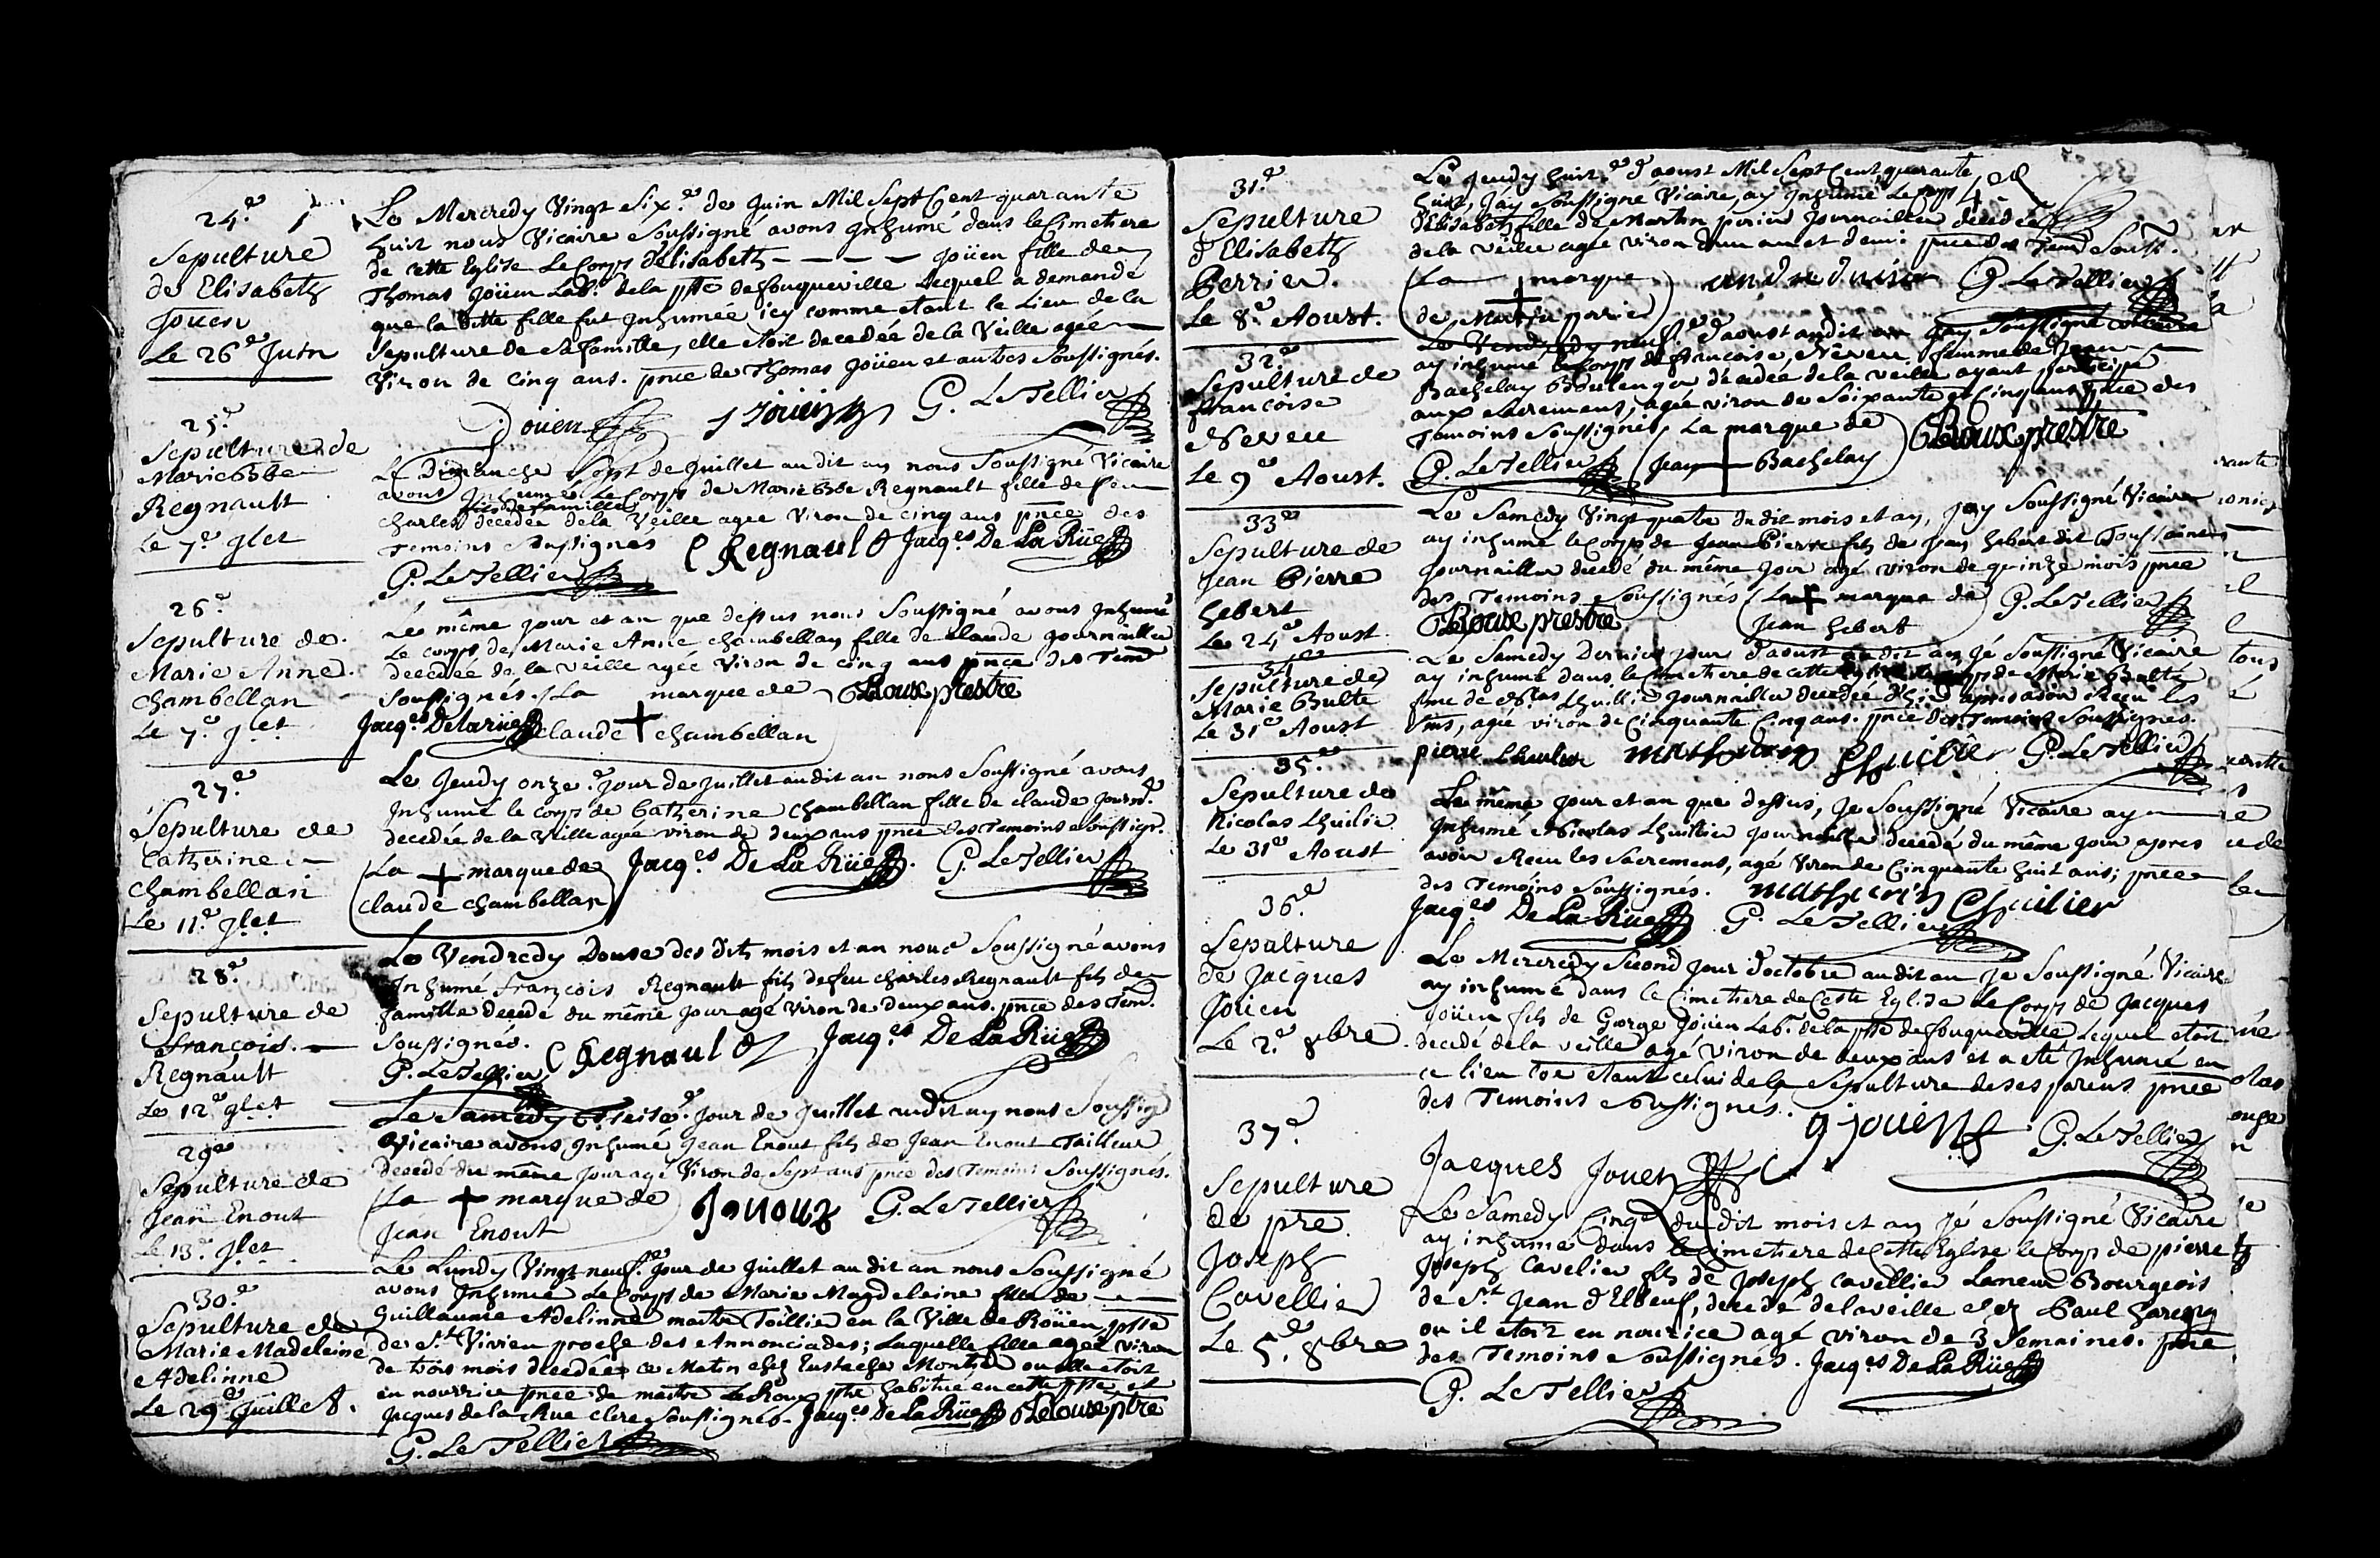 24.e
Sepulture
de Elisabeth
Joüen
Le 26e Juin
Le Mercredy Vingt Six.e de Juin Mil Sept Cent quarante
huit nous Vicaire Soussigné avons Inhumé dans le Cimetiere
de cette Eglise Le Corps d'Elisabeth - - - - Joüen fille de
Thomas Joüen Lab.r de la psse de fouqueville Lequel a demandé
que la ditte fille fut Inhumée icy comme etant le Lieu de la
Sepulture de Sa famille, elle etoit decedée de la Veille agée
Viron de Cinq ans. pnce de Thomas Joüen et autres Soussignés.
Joüen G. LeTellier
25.e
Sepulture de
Marie
Regnault
Le 7.e Jlet
Le Dimanche Sept de Juillet audit an nous Soussigné Vicaire
avons Inhumé Le Corps de Marie Regnault fille de feu
fils de famille
Charles decedée de la Veille agée Viron de cinq ans pnce des
Temoins Soussignés C Regnault Jacq.es De La Rüe
G. LeTellier
26.e
Sepulture de
Marie Anne
Chambellan
Le 7.e Jlet
Le même jour et an que dessus nous Soussigné avons Inhumé
Le corps de Marie Anne Chambellan fille de Claude Journaillier
decedée de la Veille agée Viron de cinq ans pnce des Tem
Soussignés. La marque de Leroux prestre
Jacq.es Delarüe Claude + Chambellan
27.e
Sepulture de
Catherine
Chambellan
Le 11.e Jlet
Le Jeudy onze.e jour de Juillet audit an nous Soussigné avons
Inhumé le corps de Catherine Chambellan fille de Claude Journ.
decedée de la Veille agée viron de deux ans pnce des Temoins Soussign.
La + marque de Jacq.es De La Rüe. G. LeTellier
Claude Chambellan
28.e
Sepulture de
François
Regnault
Le 12.e Jlet
Le Vendredy Douse des dits mois et an nous Soussigné avons
Inhumé François Regnault fils de feu Charles Regnault fils de
famille decedé du même jour agé viron de deux ans. pnce des Tem.
Soussignés. C Regnault Jacq.es De La Rüe
G. LeTellier
29e
Sepulture de
Jean Enout
Le 13.e Jlet
Le Samedy Treise.e jour de Juillet audit an nous Soussig
Vicaire avons Inhumé Jean Enout fils de Jean Enout Tailleur
decedé du même jour agé Viron de Sept ans pnce des Temoins Soussignés.
La + marque de G. LeTellier
Jean Enout
30.e
Sepulture de
Marie Madeleine
Adelinne
Le 29e Juillet.
Le Lundy Vingt neuf.e jour de Juillet audit an nous Soussigné
avons Inhumé Le Corps de Marie Magdelaine fille de
Guillaume Adelinne maitre Toillier en la Ville de Roüen psse
de St Vivien proche des Annonciades; Laquelle fille agée viron
de trois mois decedée ce Matin chez Eustache ou elle etoit
en nourrice pnce de maitre LeRoux ptre habitué en cette psse et
Jacques de la Rue Clerc Soussignés. Jacq.es De La Rüe Leroux ptre
G. LeTellier
31.e
Sepulture
d'Elisabeth
Perrier.
Le 8.e Aoust.
Le Jeudy huit.e d'aoust Mil Sept Cent quarante
huit, J'ay Soussigné Vicaire, ay Inhumé Le Corps
d'Elisabeth fille de Martin perier Journaillier decedée
de la veille agée viron d'un an et demi pnce des Tem Souss.
La + marque G. LeTellier
de Martin perrier
32.e
Sepulture de
françoise
Neveu
Le 9e Aoust.
Le Vendredy neuf.e d'aoust audit an Jay Soussigné Vicaire
ay inhumé le corps de françoise Neveu femme de Jean
Bachelay Boulenger decedée de la veille ayant participé
aux Sacremens, agée viron de Soixante et Cinq ans pnce des
Temoins Soussignés La marque de Leroux prestre
G. LeTellier Jean + Bachelay
33e
Sepulture de
Jean Pierre
hebert
Le 24e Aoust
Le Samedy Vingt quatre du dit mois et an, Jay Soussigné Vicaire
ay inhumé le corps de Jean Pierre fils de Jean hebert dit Toussaint
Journaillier decedé du même jour agé viron de quinze mois pnce
des Temoins Soussignés La + marque de G. LeTellier
Leroux prestre Jean hebert
34e
Sepulture de
Marie Bulté
Le 31e Aoust
Le Samedy Dernier jour d'aoust audit an, Jé Soussigné Vicaire
ay inhumé dans le Cimetiere de cette Eglise le corps de Marie Bulté
fme de Nlas Lhuillier Journaillier decedée d'hier apres avoir Reçu les
Sms, agée viron de Cinquante Cinq ans. pnce des Temoins Soussignés.
pierre Lhuilier G. LeTellier
35.e
Sepulture de
Nicolas Lhuilier
Le 31e Aoust
Le même jour et an que dessus, Je Soussigné Vicaire ay
Inhumé Nicolas Lhuillier Journaillier decedé du même jour apres
avoir Reçu les Sacremens, agé Viron de Cinquante huit ans; pnce
des Temoins Soussignés.
Jacq.es De La Rüe G. LeTellier
36.e
Sepulture
de Jacques
Joüen
Le 2.e 8bre
Le Mercredy Second jour d'octobre audit an Je Soussigné Vicaire
ay inhumé dans le Cimetiere de Cette Eglise Le Corps de Jacques
Joüen fils de George Joüen Lab.r de la psse de fouqueville Lequel etoit
decedé de la veille agé viron de deux ans et a été Inhumé en
ce lieu etant celui de la Sepulture de ses parens pnce
des Temoins Soussignés. g joüen G. LeTellier
Jacques Jouen
37.e
Sepulture
de pre
Joseph
Cavellier
Le 5.e 8bre
Le Samedy Cinq.e du dit mois et an Jé Soussigné Vicaire
ay inhumé dans le Cimetiere de Cette Eglise le Corps de pierre
Joseph Cavelier fils de Joseph Cavellier Laneur Bourgeois
de St Jean d'Elbeuf, decedé de la veille chez Paul hareng
ou il etoit en nourice agé viron de 3 Semaines. pnce
des Temoins Soussignés. Jacq.es De La Rüe
G. LeTellier